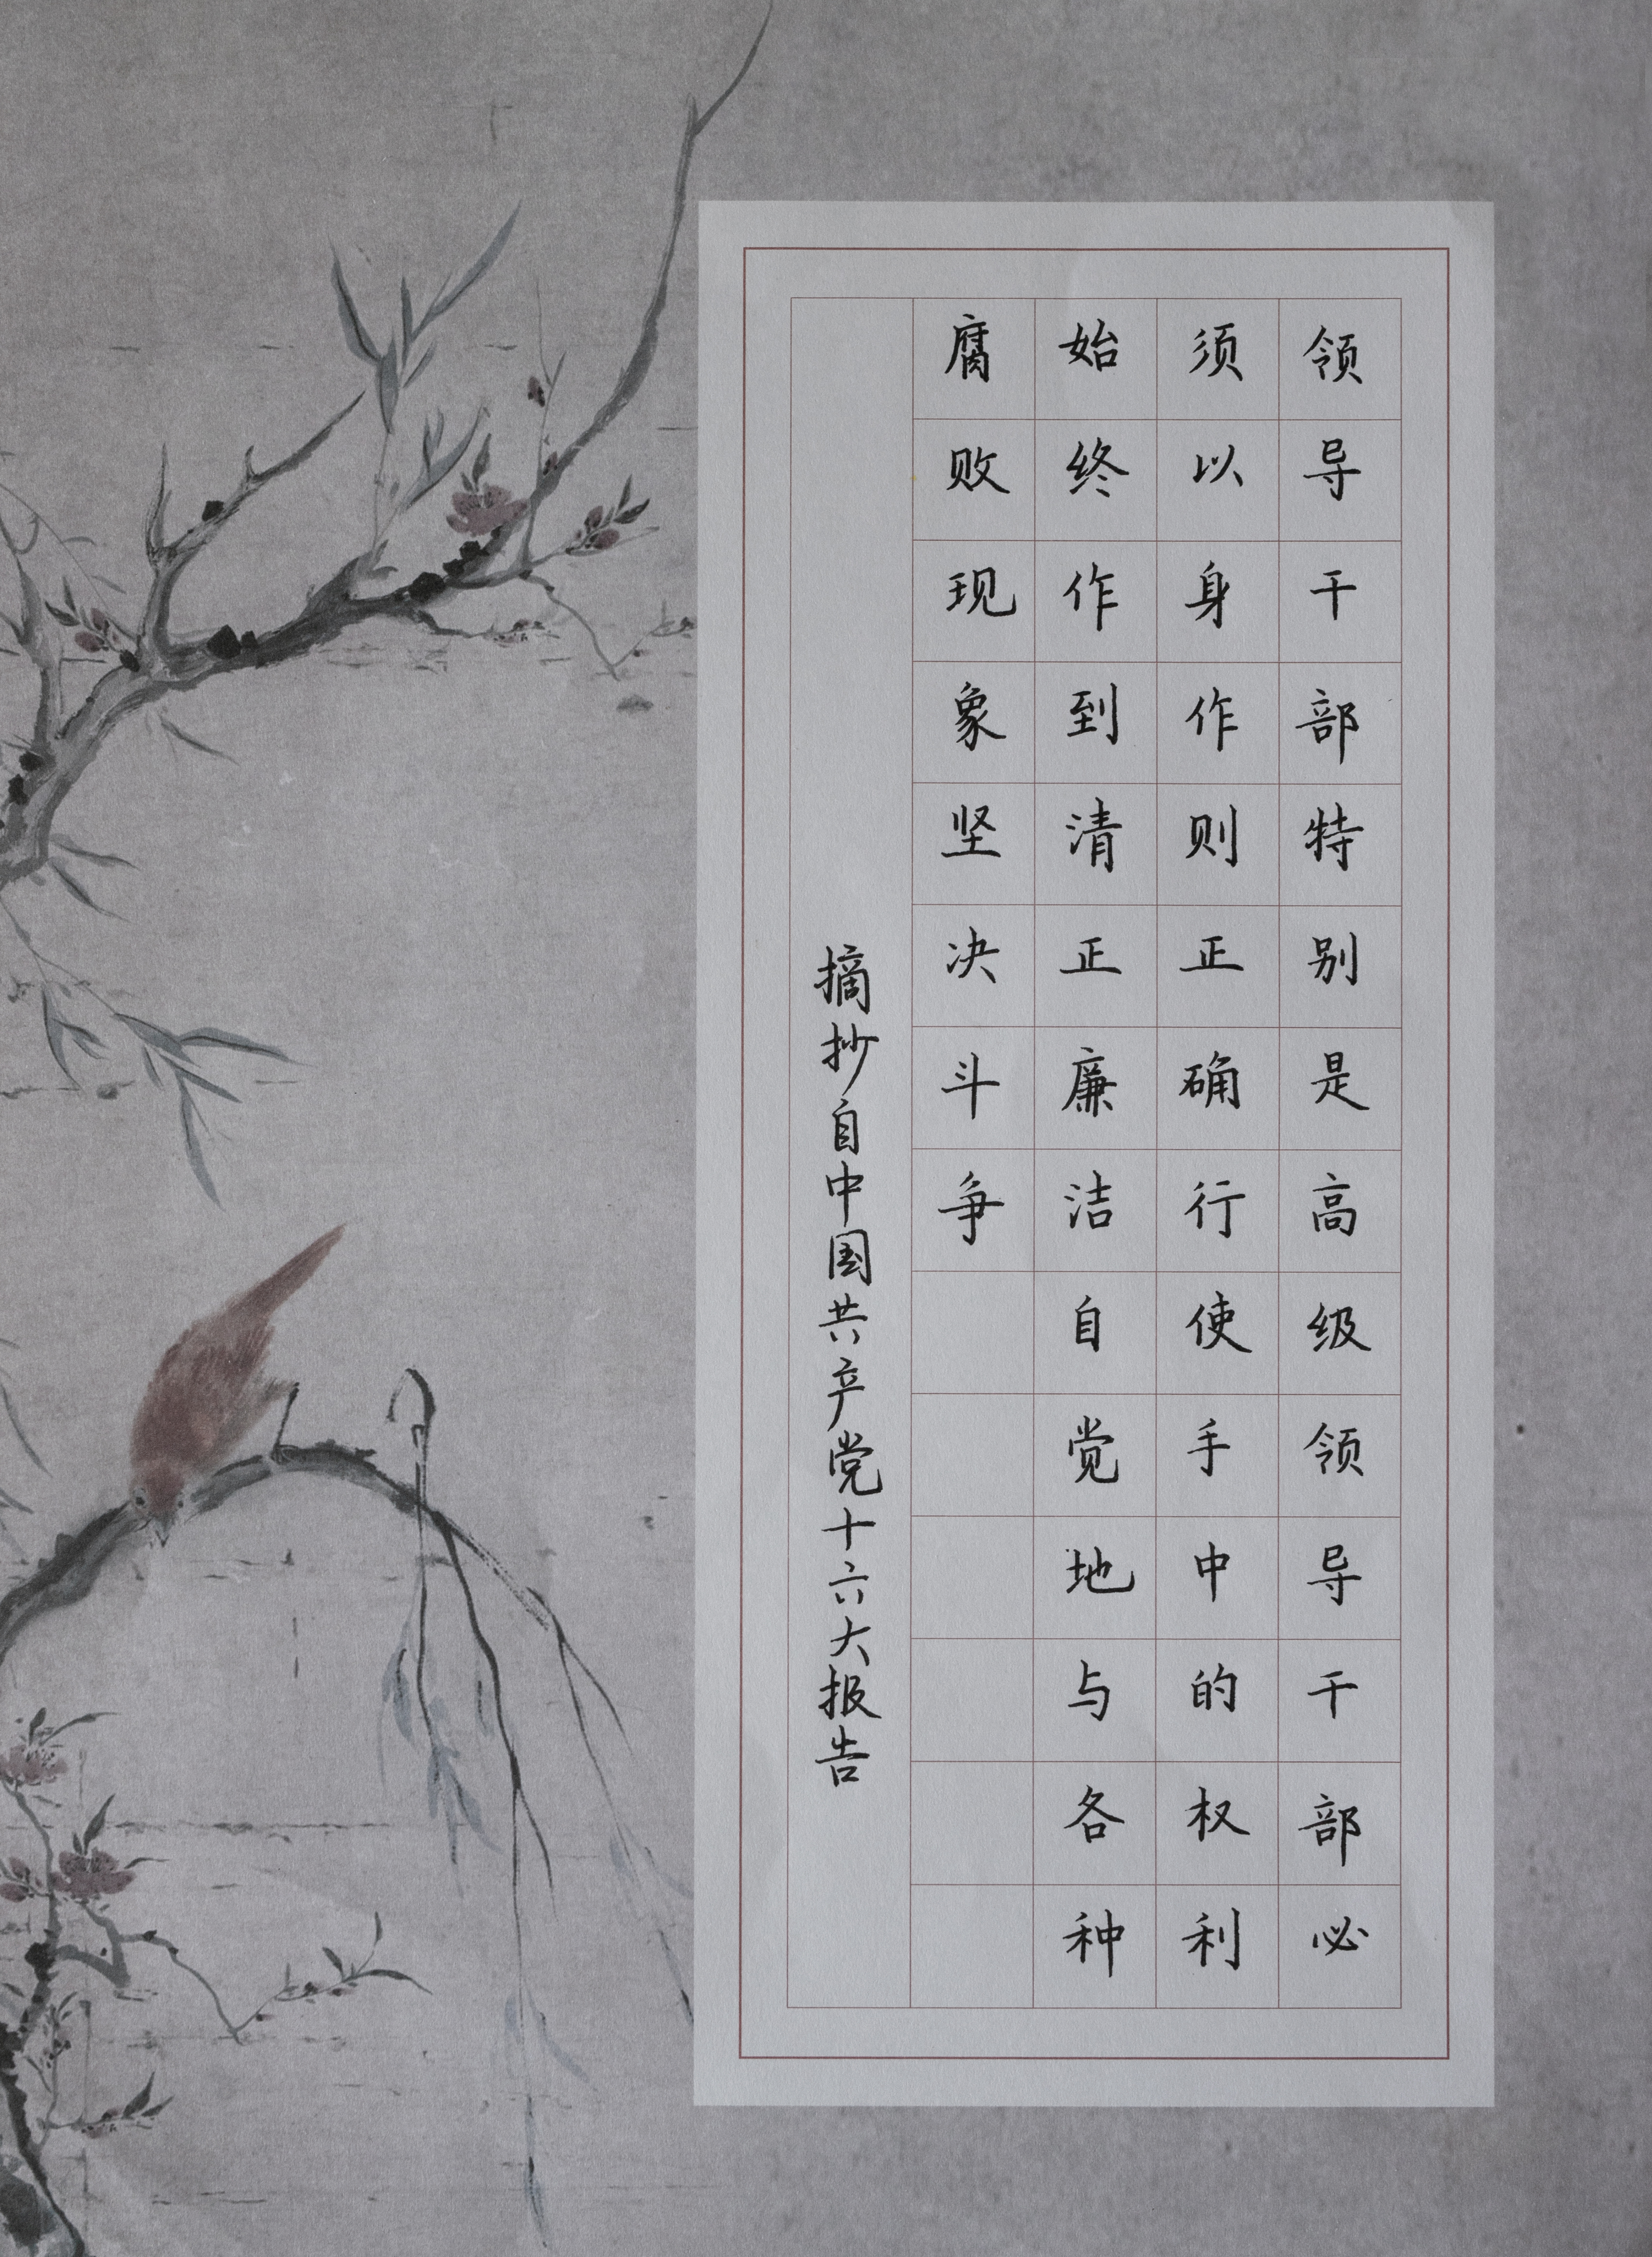 领导干部特别是高级领导干部必
须以身作则正确行使手中的权利
始终作到清正廉洁自觉地与各种
腐败现象坚决斗争
摘抄自中国共产党十六大报告